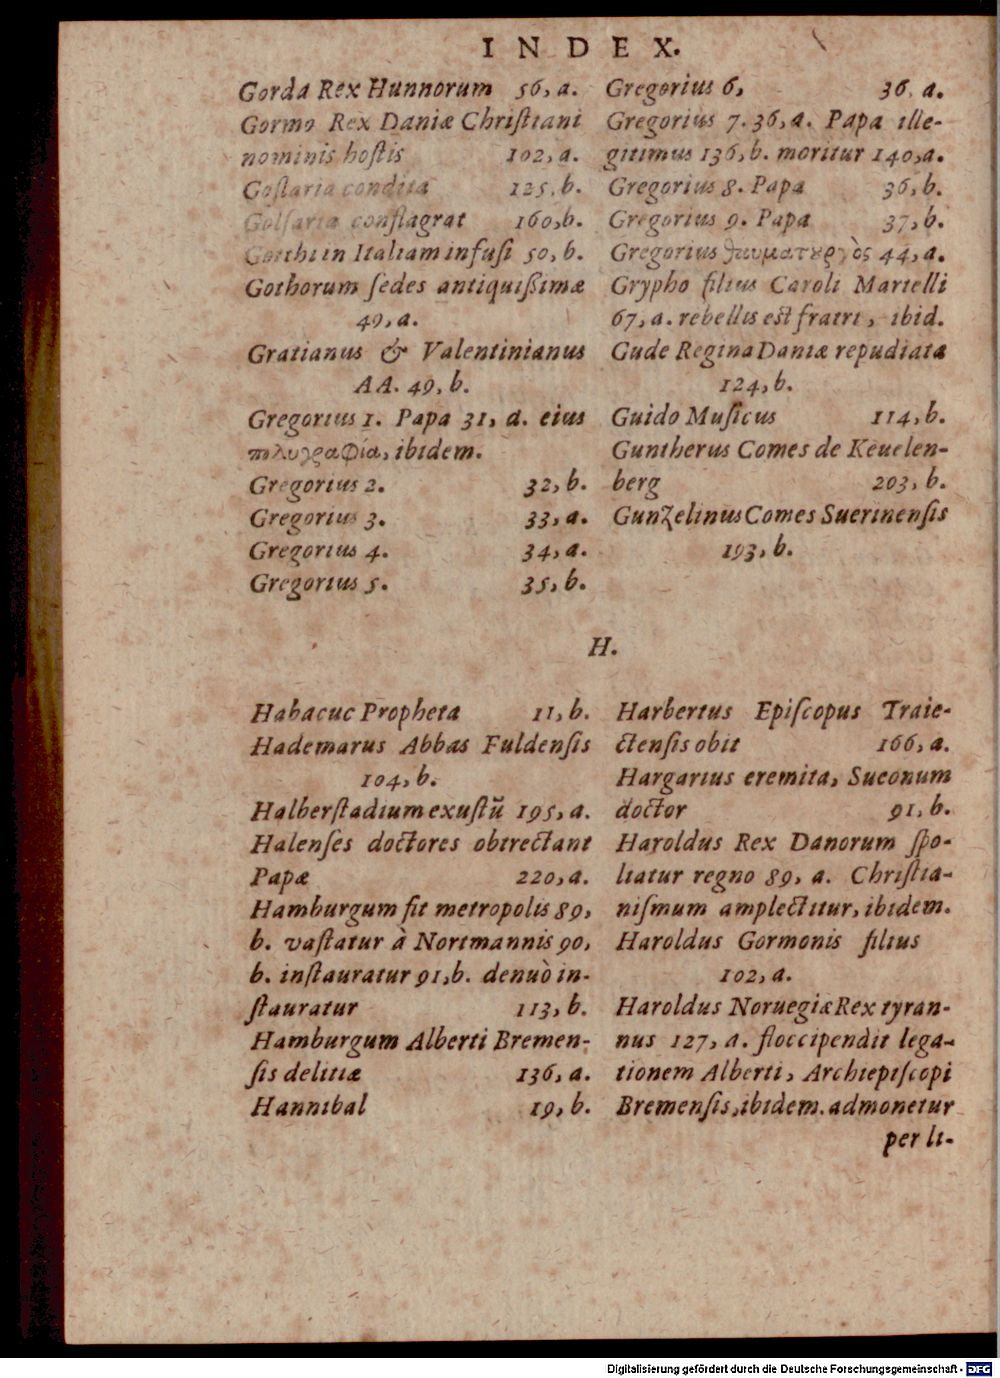 INDEX.
Gorda Rex Hunnorum 56, a.
Gormo Rex Daniæ Chriſtiani
nominis hoſtis 102, a.
Goſlaria condita 125, b.
Golſaria conflagrat 160, b.
Gotthi in Italiam infuſi 50, b.
Gothorum ſedes antiquißimæ
49, a.
Gratianus & Valentinianus
AA. 49, b.
Gregorius 1. Papa 31, a. eius
πολυγραφία, ibidem.
Gregorius 2. 32, b.
Gregorius 3. 33, a.
Gregorius 4. 34, a.
Gregorius 5. 35, b.
Gregorius 6, 36, a.
Gregorius 7. 36, a. Papa ille-
gitimus 136, b. moritur 140, a.
Gregorius 8. Papa 36, b.
Gregorius 9. Papa 37, b.
Gregorius θαυματουργὸς 44, a.
Grypho filius Caroli Martelli
67, a. rebellis est fratri, ibid.
Gude Regina Daniæ repudiata
124, b.
Guido Muſicus 114, b.
Guntherus Comes de Keuelen-
berg 203, b.
Gunzelinus Comes Suerinenſis
193, b.
H.
Habacuc Propheta 11, b.
Hademarus Abbas Fuldenſis
104, b.
Halberſtadium exuſtũ 195, a.
Halenſes doctores obtrectant
Papæ 220, a.
Hamburgum fit metropolis 89,
b. vaſtatur à Nortmannis 90,
b. inſtauratur 91, b. denuò in-
ſtauratur 113, b.
Hamburgum Alberti Bremen-
ſis delitiæ 136, a.
Hannibal 19, b.
Harbertus Epiſcopus Traie-
ctenſis obit 166, a.
Hargarius eremita, Sueonum
doctor 91, b.
Haroldus Rex Danorum ſpo-
liatur regno 89, a. Chriſtia-
niſmum amplectitur, ibidem.
Haroldus Gormonis filius
102, a.
Haroldus Noruegiæ Rex tyran-
nus 127, a. floccipendit lega-
tionem Alberti, Archiepiſcopi
Bremenſis, ibidem. admonetur
per li-
Digitalisierung gefördert durch die Deutsche Forschungsgemeinschaft - DFG